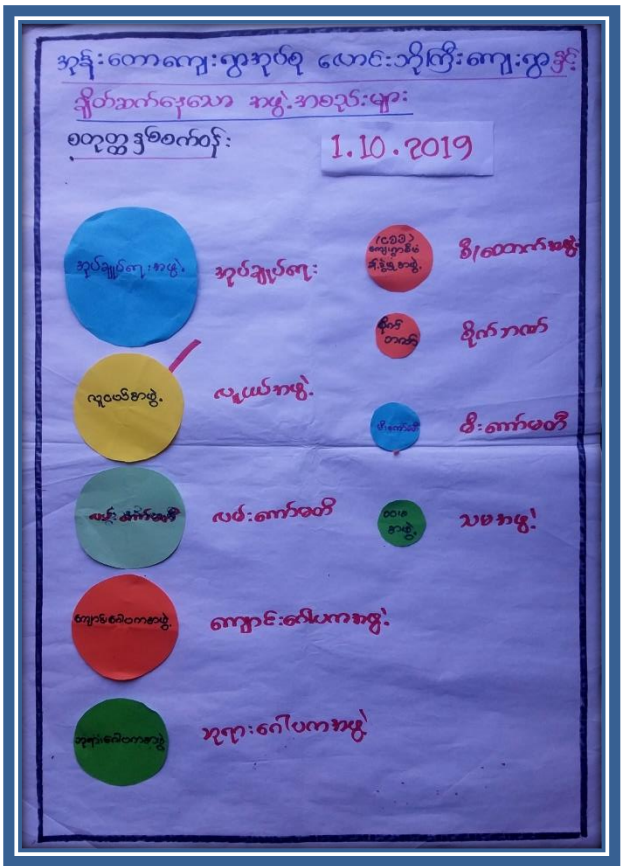 အုန်းတောကျေးရွာအုပ်စု လောင်းဘိုကြီးကျေးရွာနှင့်
ချိတ်ဆက်နေသော အဖွဲ့အစည်းများ
စတုတ္ထနှစ်စက်ဝန်း
1.10.2019
အုပ်ချုပ်ရေးအဖွဲ့
အုပ်ချုပ်ရေး
လူငယ်အဖွဲ့
လူငယ်အဖွဲ့
လမ်းကော်မတီ
လမ်းကော်မတီ
ကျောင်းဂေါပကအဖွဲ့
ကျောင်းဂေါပကအဖွဲ့
ဘုရားဂေါပကအဖွဲ့
ဘုရားဂေါပကအဖွဲ့
စီ/ထောက်အဖွဲ့
စိုက်
ဘဏ်
စိုက်ဘဏ်
မီးကော်မတီ
မီးကော်မတီ
သမ
အဖွဲ့
သမအဖွဲ့